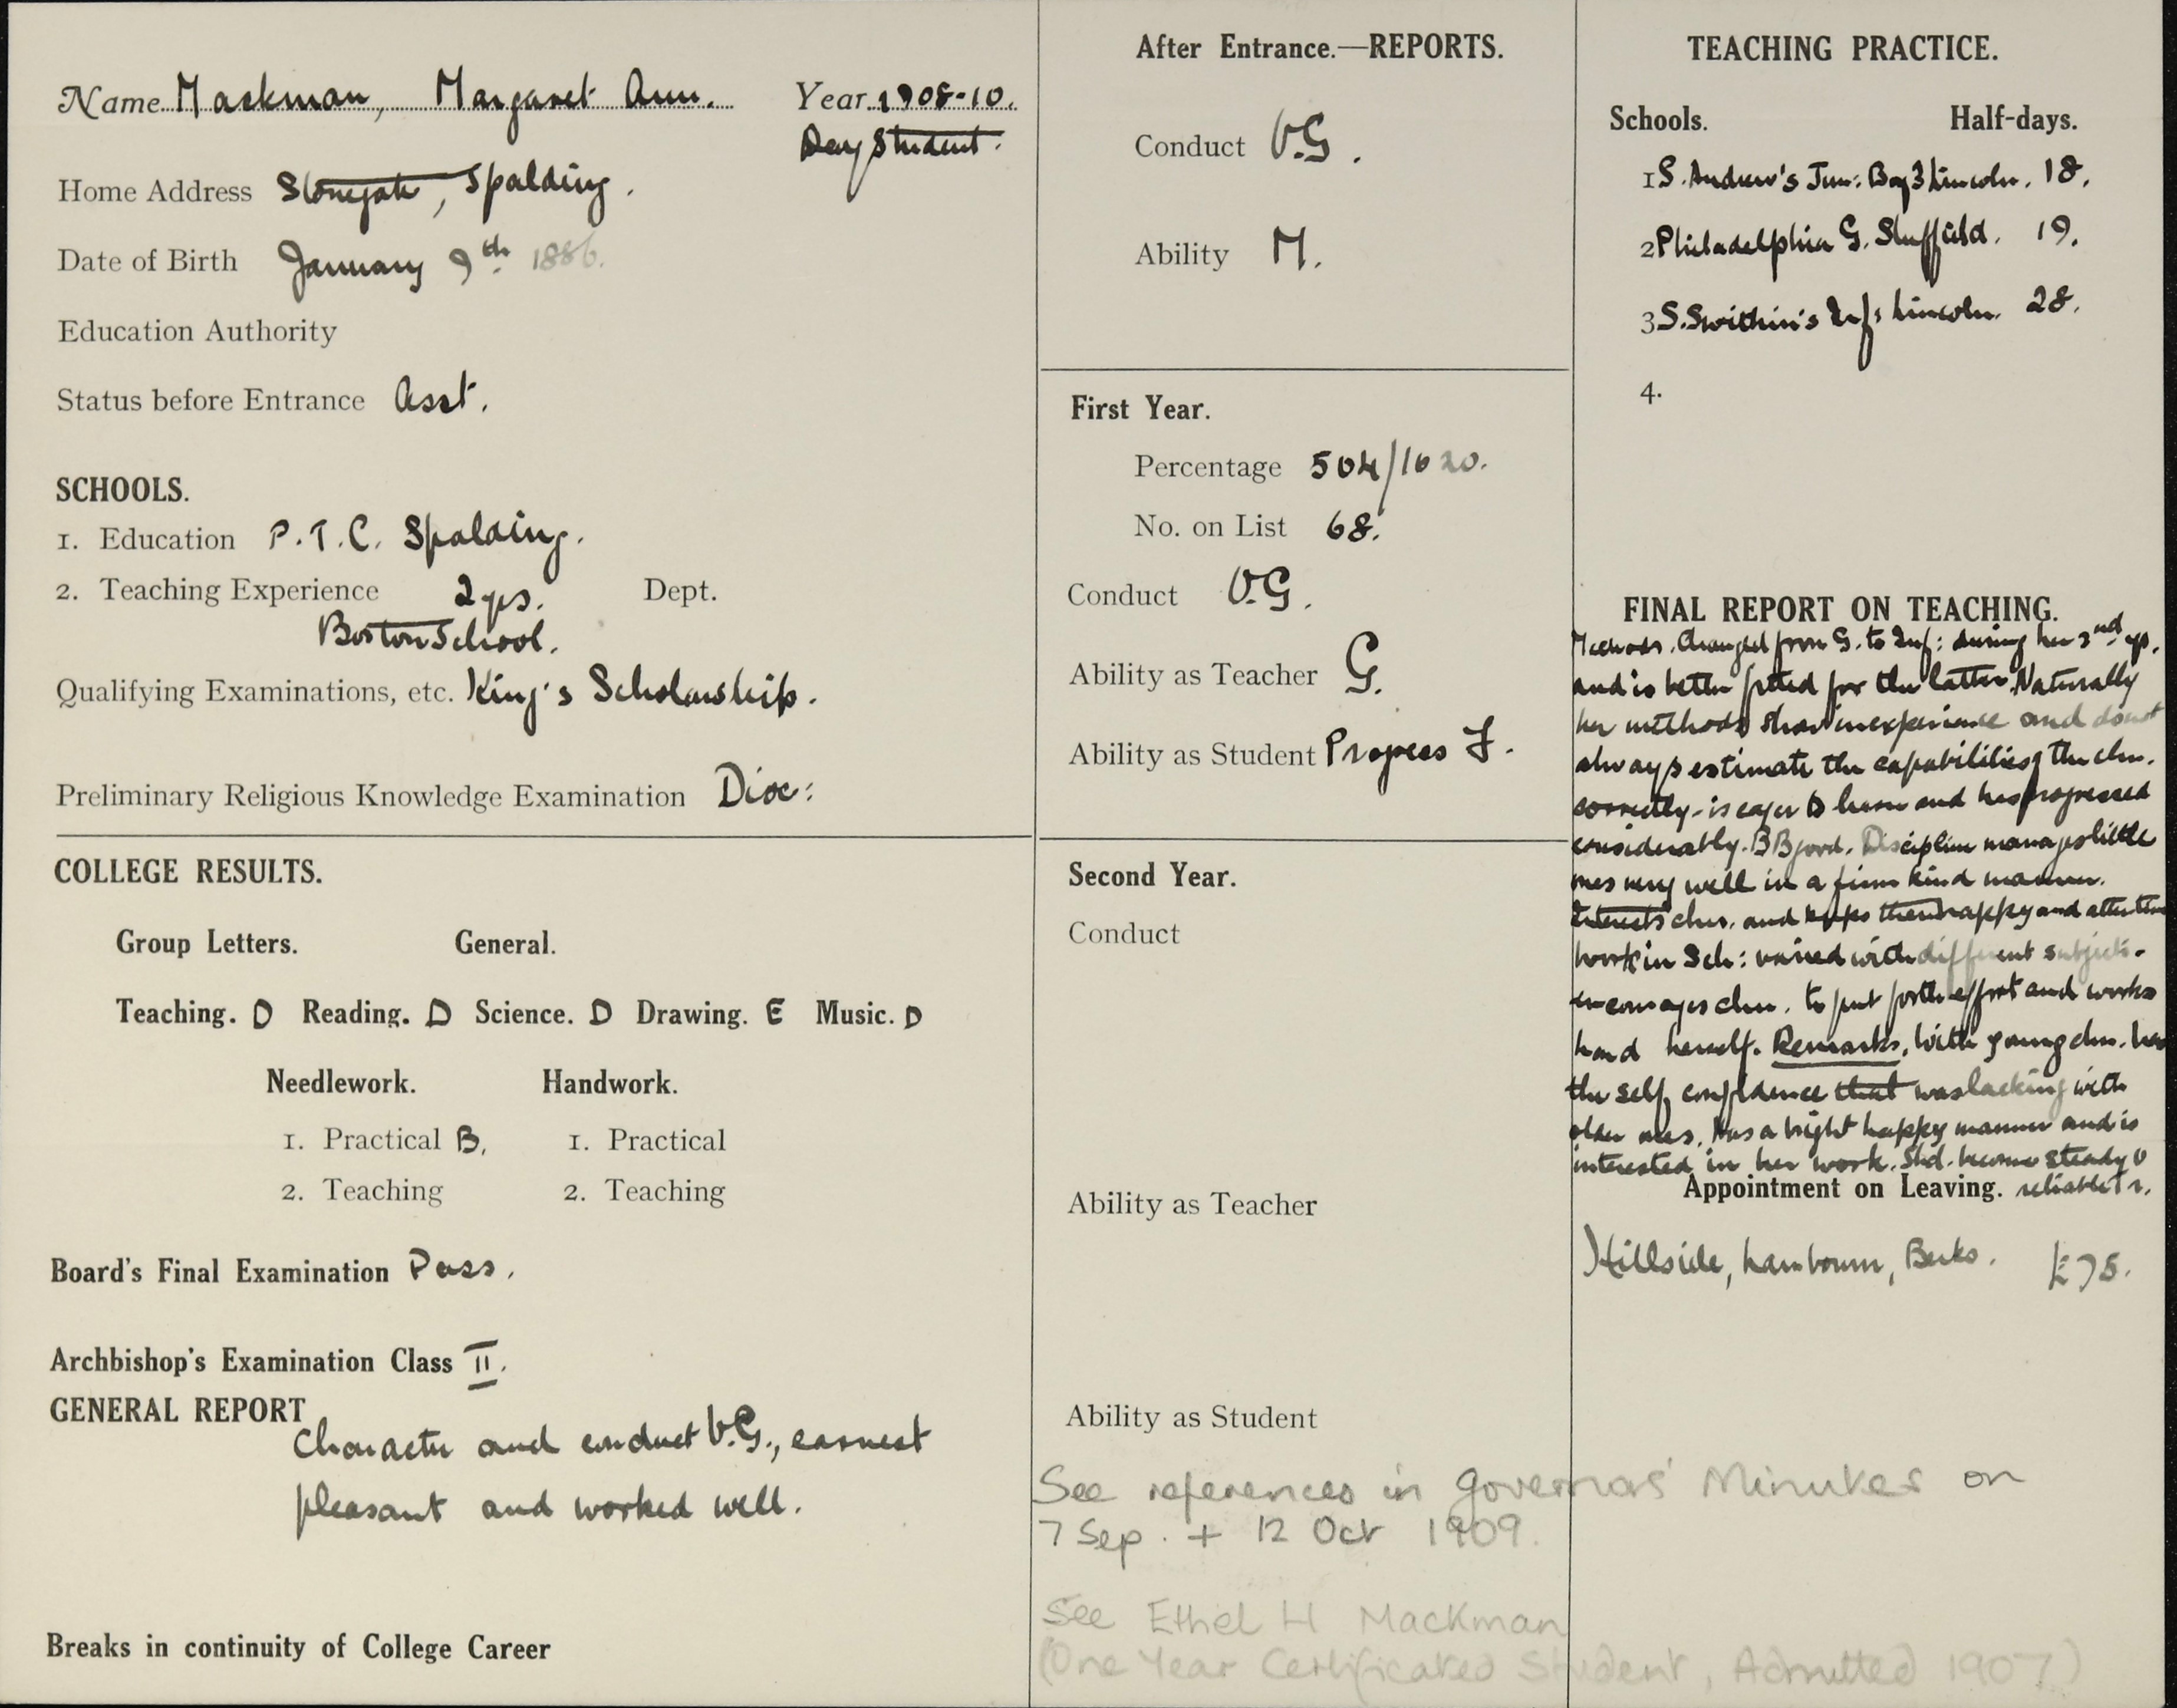 Name Mackman, Margaret Ann. Year 1908-10.
Day Student.
Home Address Stonegate, Spalding.
Date of Birth January 9th 1886.
Education Authority
Status before Entrance Asst.
SCHOOLS.
1. Education P.T.C. Spalding.
2. Teaching Experience 2 yrs. Dept.
Boston School.
Qualifying Examinations, etc. King's Scholarship.
Preliminary Religious Knowledge Examination Dioc:
COLLEGE RESULTS.
Group Letters. General.
Teaching. D Reading. D Science. D Drawing. E Music. D
Needlework. Handwork.
1. Practical B, 1. Practical
2. Teaching 2. Teaching
Board's Final Examination Pass.
Archbishop's Examination Class II.
GENERAL REPORT
Character and conduct V.G., earnest
pleasant and worked well.
Breaks in continuity of College Career
After Entrance.—REPORTS.
Conduct V.G.
Ability M.
First Year.
Percentage 504/1020.
No. on List 68.
Conduct V.G.
Ability as Teacher G.
Ability as Student Progress F.
Second Year.
Conduct
Ability as Teacher
Ability as Student
See references in Governors' Minutes on
7 Sep. + 12 Oct 1909.
See Ethel H Mackman
(One Year Certificated Student, Admitted 1907)
TEACHING PRACTICE.
Schools. Half-days.
1 S. Andrew's Jun: Boys Lincoln. 18.
2 Philadelphia G. Sheffield. 19.
3 S. Swithin's Inf: Lincoln. 28.
4.
FINAL REPORT ON TEACHING.
Methods. Changed from G. to Inf: during her 2nd yr.
and is better fitted for the latter. Naturally
her methods show inexperience and doesn't
always estimate the capabilities of the chn.
correctly - is eager to learn and has progressed
considerably. BB good. Discipline manages little
ones very well in a firm kind manner.
Interests chn. and keeps them happy and attentive
work in Sch: varied with different subjects -
encourages chn. to put forth effort and works
hard herself. Remarks. With young chn. has
the self confidence that was lacking with
older ones. Has a bright happy manner and is
interested in her work. Shd. become steady &
reliable Tr.
Appointment on Leaving.
Hillside, Lambourn, Berks. £75.